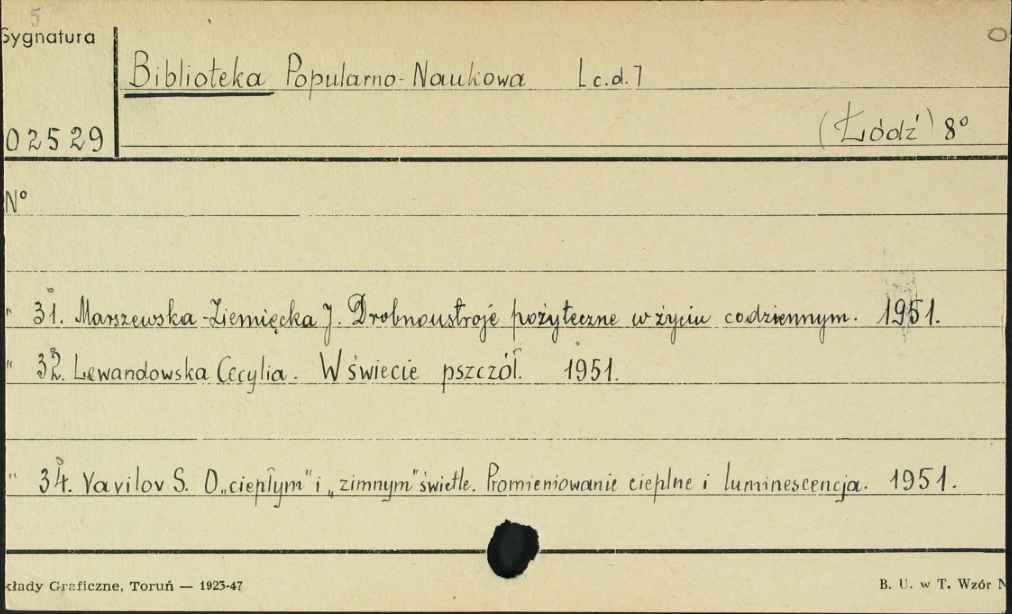 5
Sygnatura
Biblioteka Popularno-Naukowa [c.d.]
(Łódź) 8°
02529
N°
" 31. Marszewska-Ziemięcka J. Drobnoustroje pożyteczne w życiu codziennym. 1951.
" 32. Lewandowska Cecylia. W świecie pszczół. 1951.
" 34. Vavilov S. O „ciepłym" i „zimnym" świetle. Promieniowanie cieplne i luminescencja. 1951.
kłady Graficzne, Toruń — 1923-47
B. U. w T. Wzór N